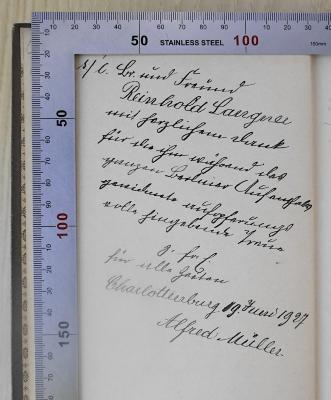 50 STAINLESS STEEL 100
150mm
50
100
150
s/l. Br. und Freund
Reinhold Laegner
mit herzlichem Dank
für die ihm während des
ganzen Berliner Aufenthaltes
gewidmete aufopferungs
volle hingebende Treue
z. fr. E
für alle Zeiten
Charlottenburg 19. Juni 1927
Alfred Müller.